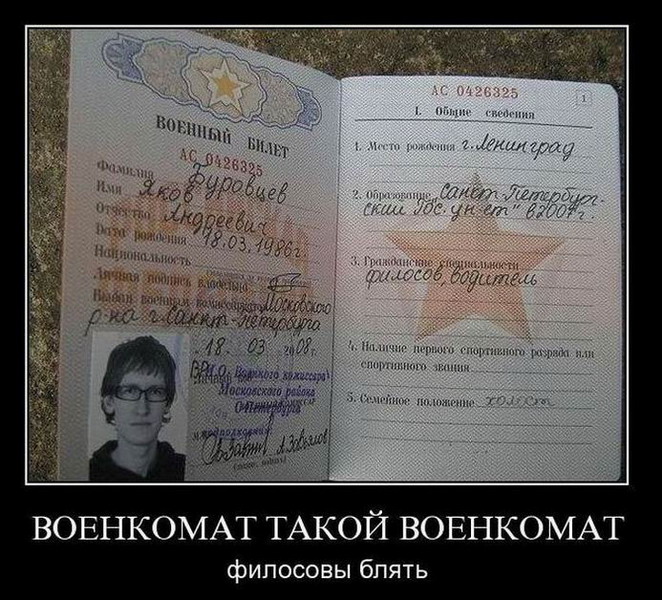 ВОЕННЫЙ БИЛЕТ
АС 0426325
Фамилия Буровцев
Имя Яков
Отчество Андреевич
Дата рождения 18.03.1986г.
Национальность
Личная подпись владельца
Выдан военным комиссариатом Московского
р-на г. Санкт-Петербурга
18. 03 2008г.
ВРИО Военного комиссара
Московского района
С-Петербурга
АС 0426325
1
I. Общие сведения
1. Место рождения г. Ленинград
2. Образование "Санкт-Петербург-
ский Гос. ун-ет" в 2007г.
3. Гражданские специальности
филосов, водитель
4. Наличие первого спортивного разряда или
спортивного звания
5. Семейное положение холост
ВОЕНКОМАТ ТАКОЙ ВОЕНКОМАТ
филосовы блять